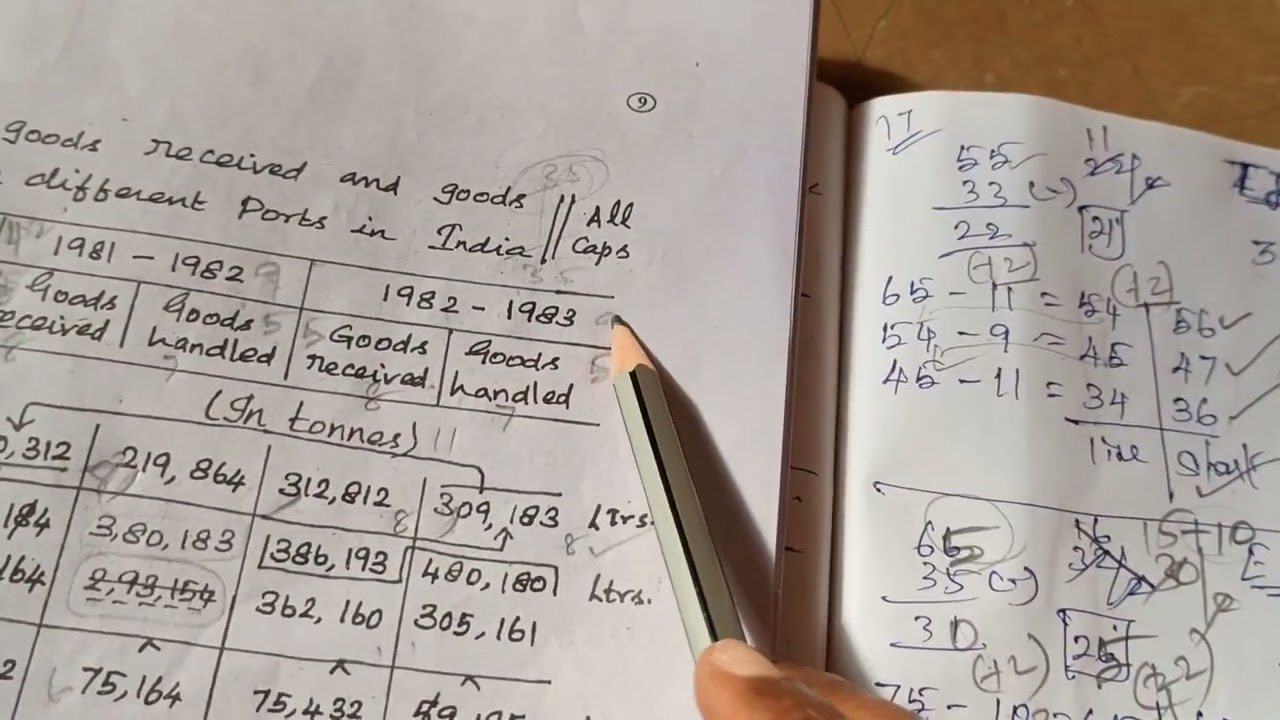 9
goods received and goods
different Ports in India // All Caps
1981 - 1982
1982 - 1983
Goods received
Goods handled
Goods received
Goods handled
(In tonnes)
312 219,864 312,812 309,183 Ltrs.
184 3,80,183 386,193 480,180 Ltrs.
164 2,93,154 362,160 305,161
2 75,164 75,432
17
55
33 (-)
22
(+2)
65 - 11 = 54 56 ✓
54 - 9 = 45 47 ✓
45 - 11 = 34 36
line
65
35 (-)
30
(+2)
15+10
(+2)